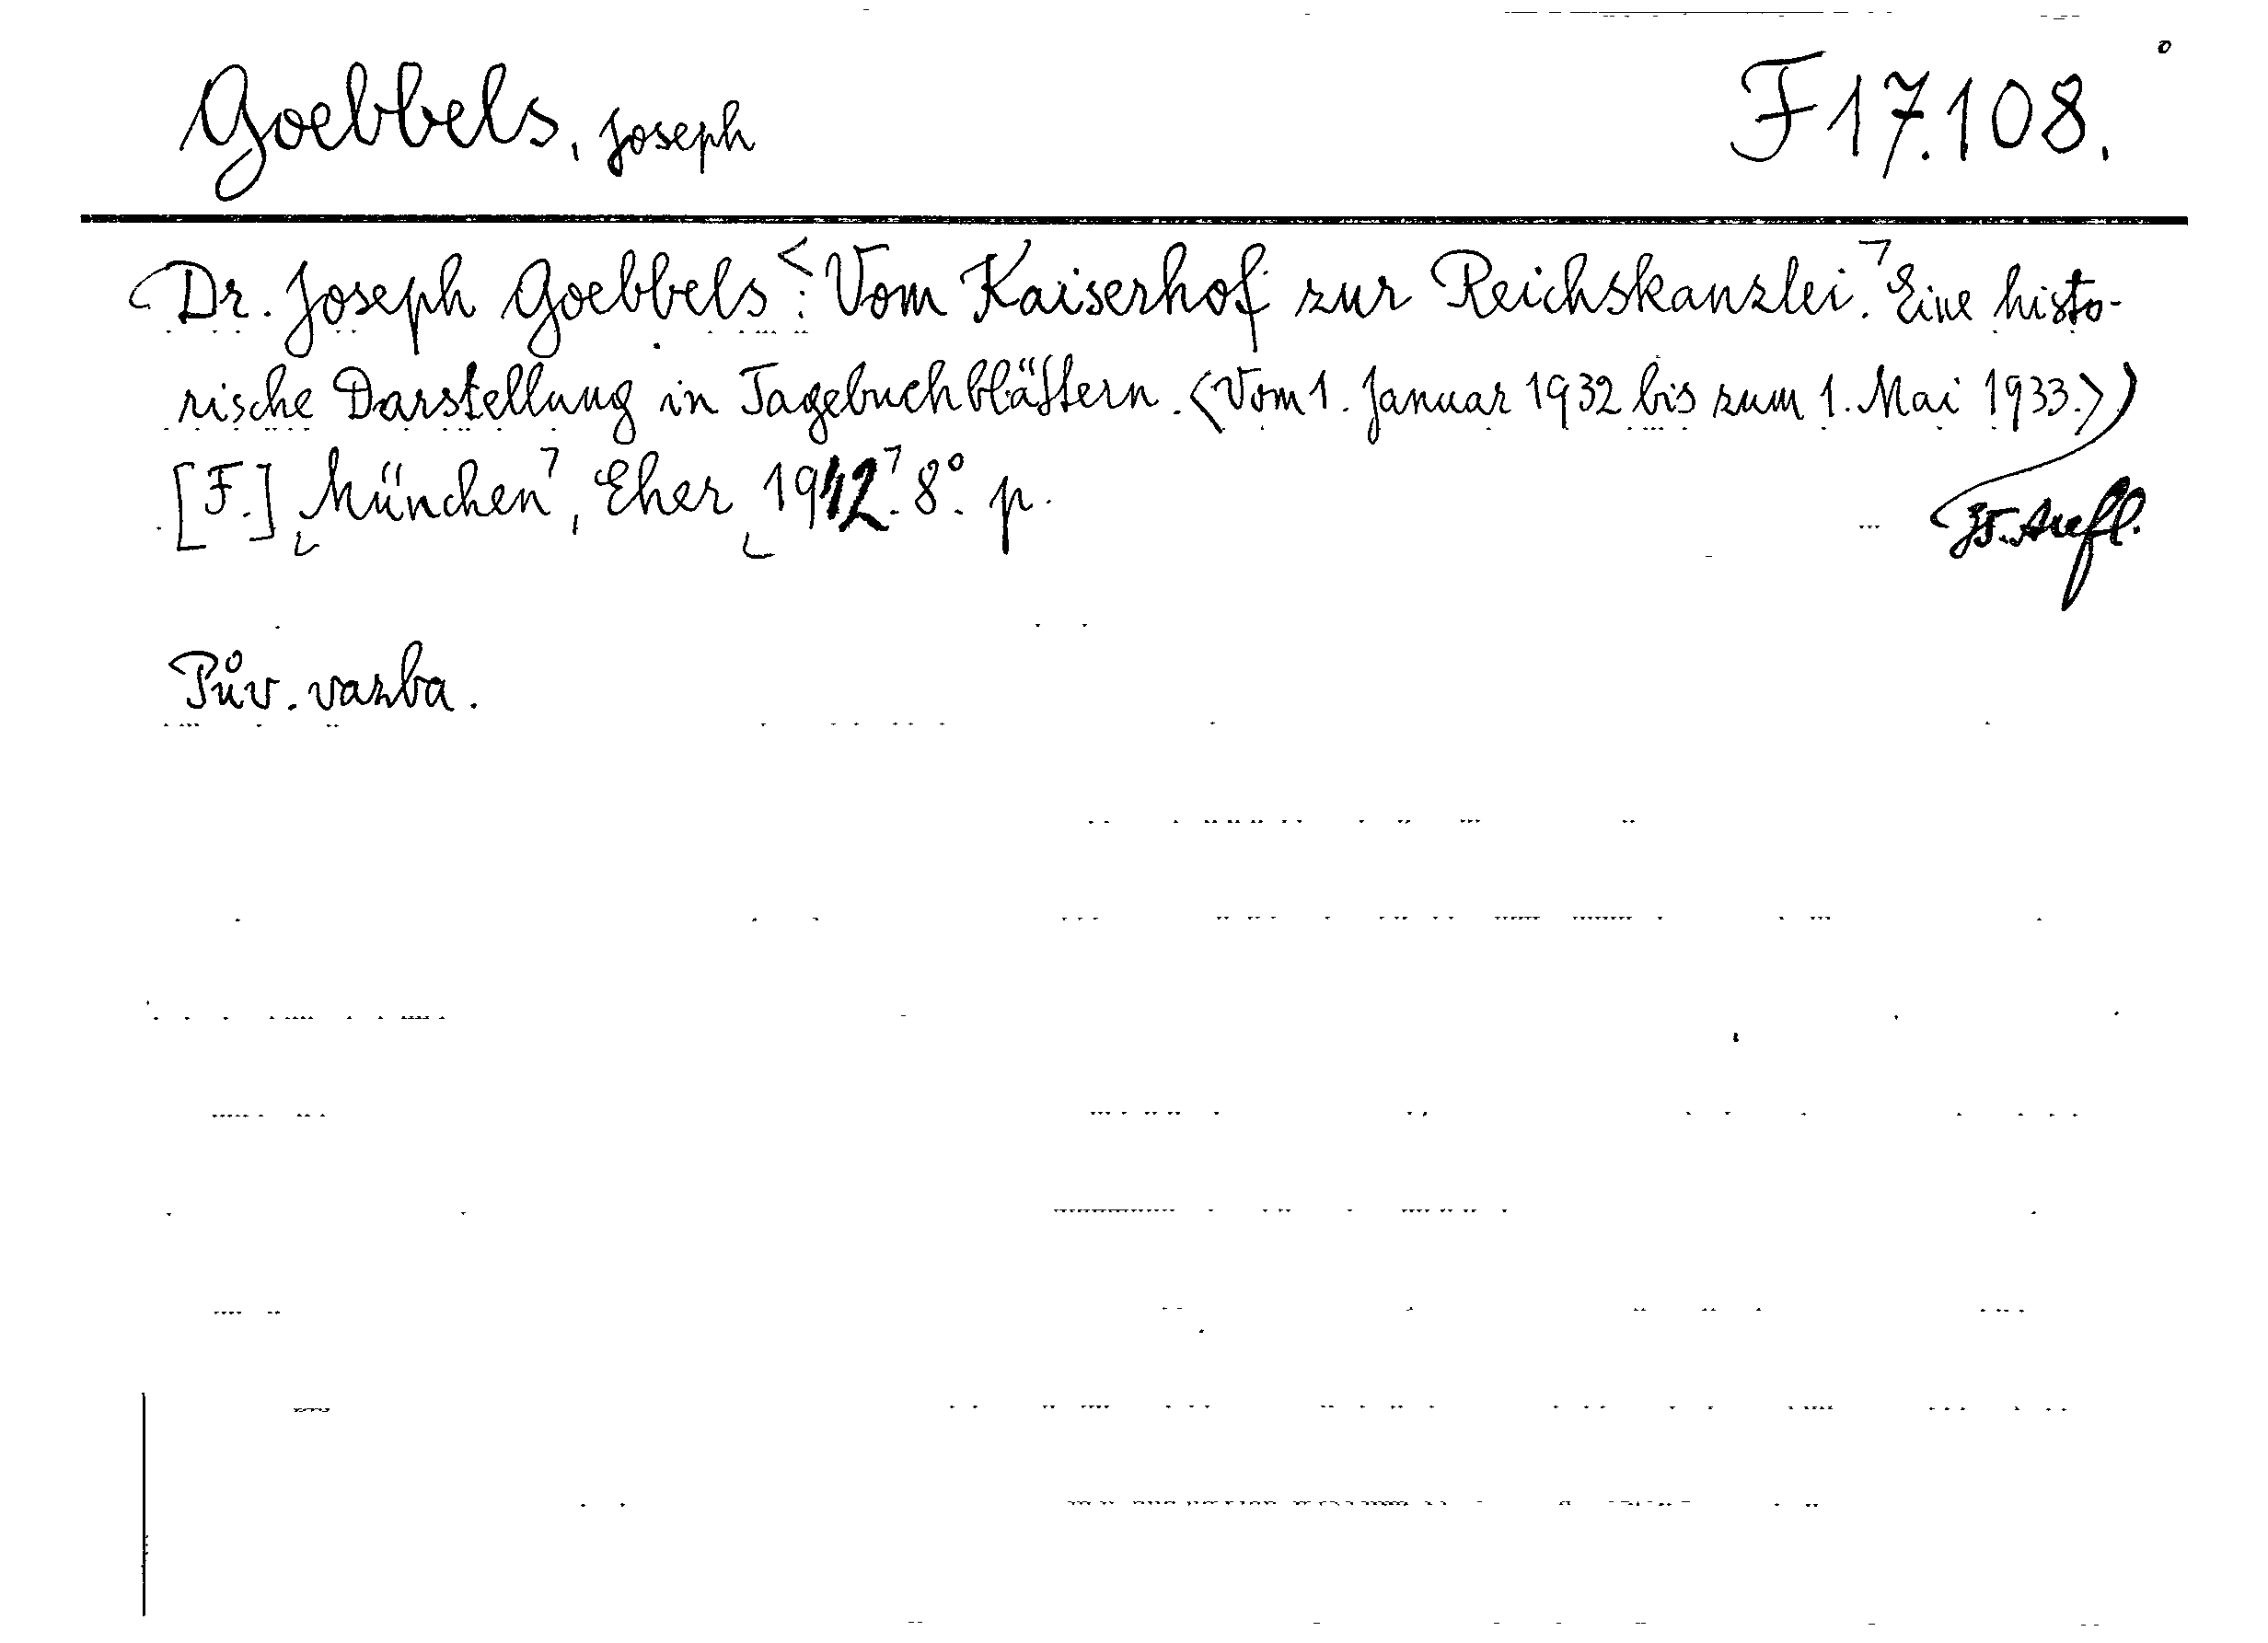 Goebbels, Joseph F 17.108.
Dr. Joseph Goebbels: <Vom Kaiserhof zur Reichskanzlei.> Eine histo-
rische Darstellung in Tagebuchblättern. <Vom 1. Januar 1932 bis zum 1. Mai 1933.>)
[F.] München, Eher 1942. 8° p. Aufl.
Pův. vazba.